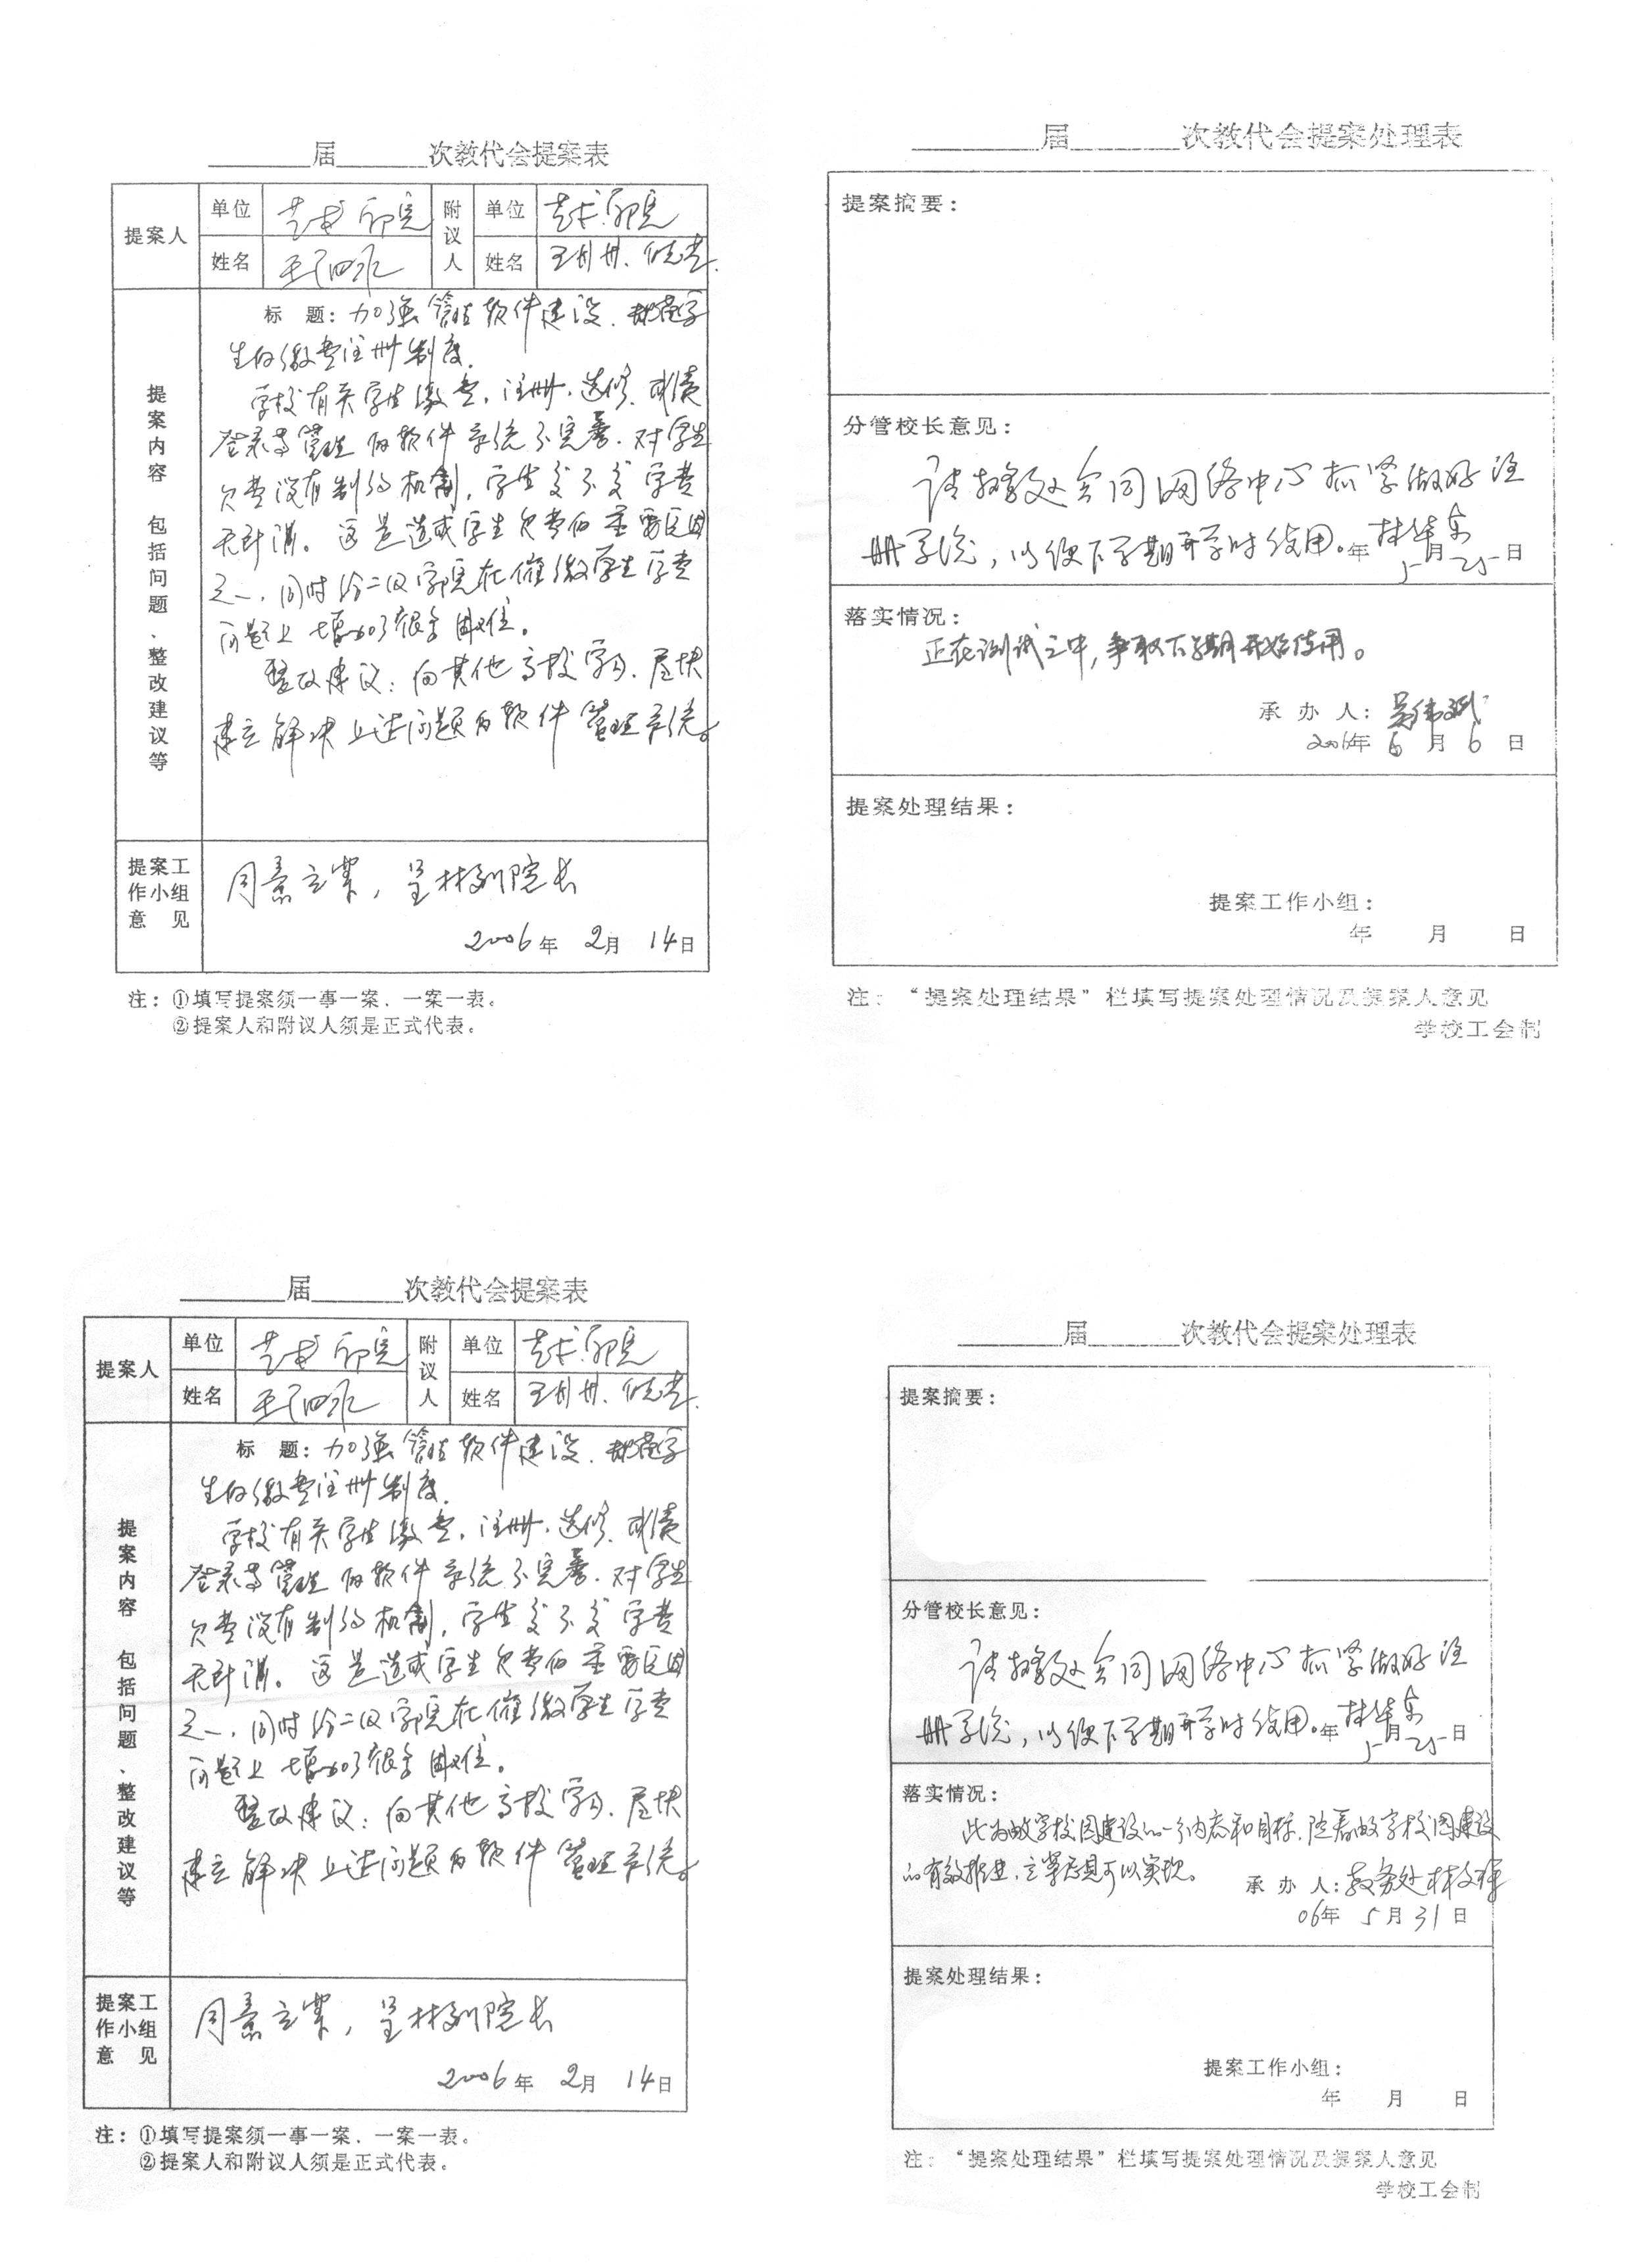 届 次教代会提案表
提案人 单位 艺术学院 附议人 单位 艺术学院
姓名 姓名
标 题：加强管理软件建设、规范学
生的缴费注册制度。
提案内容 包括问题、整改建议等
学校有关学生缴费、注册、选修、成绩
登录等管理的软件系统不完善、对学生
欠费没有制约机制，学生交不交学费
无所谓。这是造成学生欠费的重要原因
之一，同时给二级学院在催缴学生学费
问题上增加了很多困难。
整改建议：向其他高校学习、尽快
建立解决上述问题的软件管理系统。
提案工作小组意见
同意立案，呈林副院长
2006年 2月 14日
注：①填写提案须一事一案、一案一表。
②提案人和附议人须是正式代表。
届 次教代会提案处理表
提案摘要：
分管校长意见：
请教务处会同网络中心抓紧做好注
册系统，以便下学期开学时使用。年 月 日
5 25
落实情况：
正在测试之中，争取下学期开始使用。
承 办 人：
2006年 6 月 6 日
提案处理结果：
提案工作小组：
年 月 日
注：“提案处理结果”栏填写提案处理情况及提案人意见
学校工会制
届 次教代会提案表
提案人 单位 艺术学院 附议人 单位 艺术学院
姓名 姓名
标 题：加强管理软件建设、规范学
生的缴费注册制度。
提案内容 包括问题、整改建议等
学校有关学生缴费、注册、选修、成绩
登录等管理的软件系统不完善、对学生
欠费没有制约机制，学生交不交学费
无所谓。这是造成学生欠费的重要原因
之一，同时给二级学院在催缴学生学费
问题上增加了很多困难。
整改建议：向其他高校学习、尽快
建立解决上述问题的软件管理系统。
提案工作小组意见
同意立案，呈林副院长
2006年 2月 14日
注：①填写提案须一事一案、一案一表。
②提案人和附议人须是正式代表。
届 次教代会提案处理表
提案摘要：
分管校长意见：
请教务处会同网络中心抓紧做好注
册系统，以便下学期开学时使用。年 月 日
5 25
落实情况：
此为数字校园建设的一个内容和目标，随着数字校园建设
的有效推进，立案意见可以实现。
承 办 人：教务处
06年 5月31日
提案处理结果：
提案工作小组：
年 月 日
注：“提案处理结果”栏填写提案处理情况及提案人意见
学校工会制